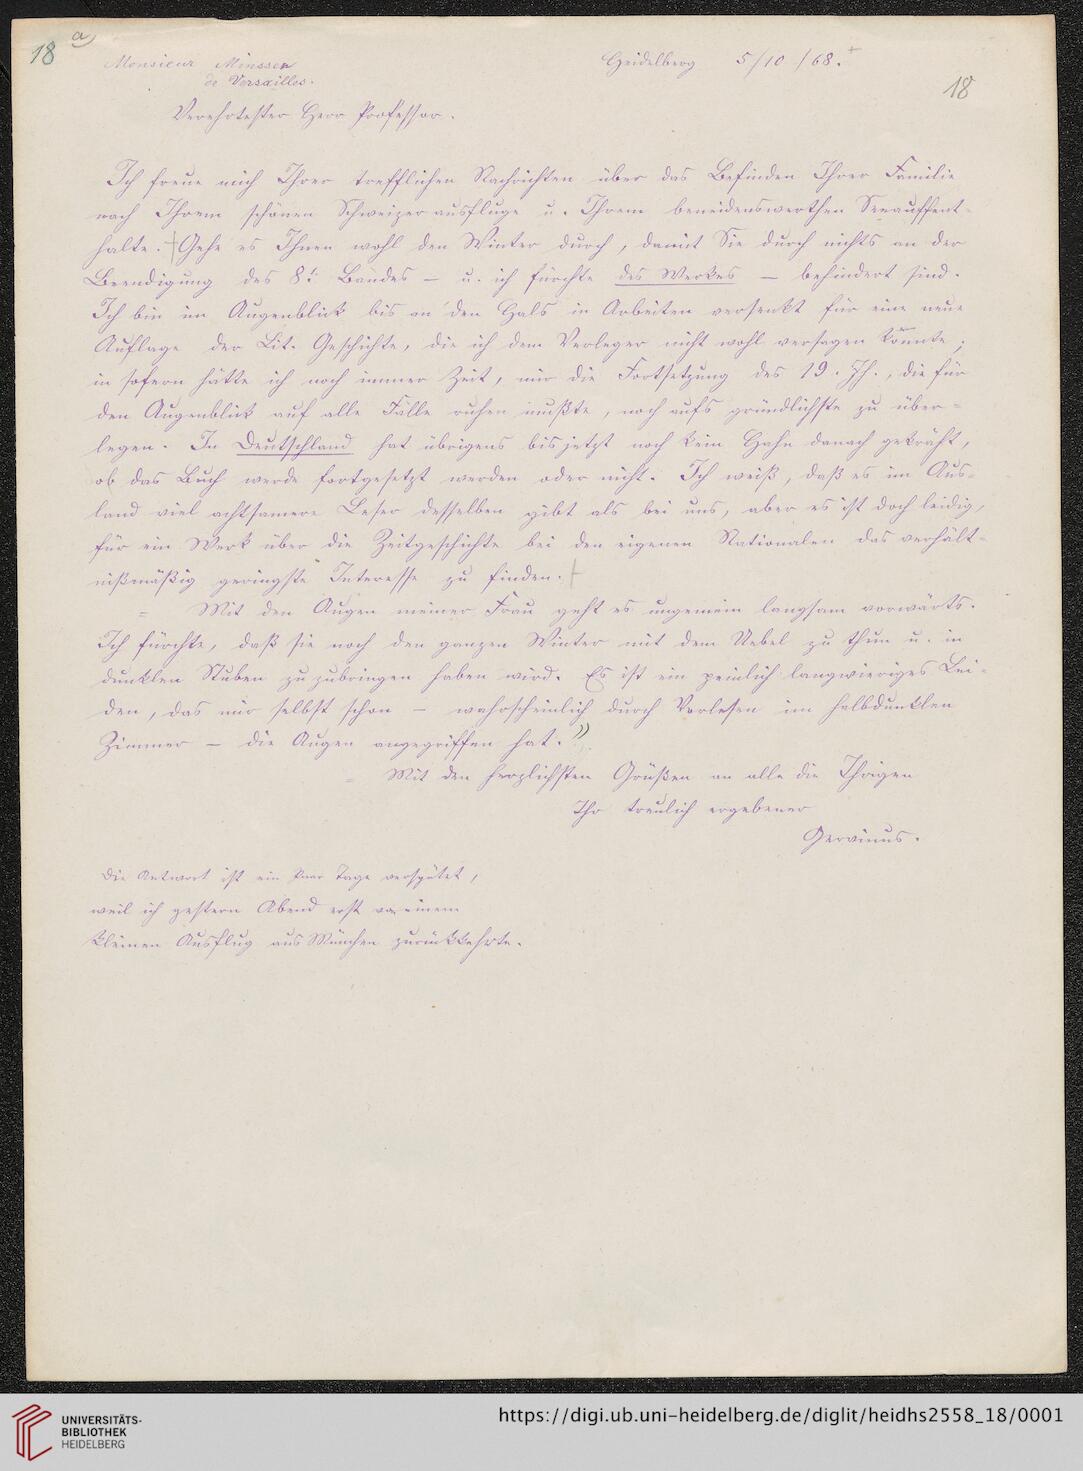 18 a)
Monsieur Minssen
de Versailles.
Heidelberg 5/10 /68.
18
Verehrtester Herr Professor.
Ich freue mich Ihrer trefflichen Nachrichten über das Befinden Ihrer Familie
nach Ihrem schönen Schweizerausfluge u. Ihrem beneidenswerthen Seeauffent-
halte. Gehe es Ihnen wohl den Winter durch, damit Sie durch nichts an der
Beendigung des 8t. Bandes – u. ich fürchte des Werkes – behindert sind.
Ich bin im Augenblick bis an den Hals in Arbeiten versenkt für eine neue
Auflage der Lit. Geschichte, die ich dem Verleger nicht wohl versagen konnte;
in sofern hätte ich noch immer Zeit, mir die Fortsetzung des 19. Jh., die für
den Augenblick auf alle Fälle ruhen mußte, noch aufs gründlichste zu über-
legen. In Deutschland hat übrigens bis jetzt noch kein Hahn danach gekräht,
ob das Buch werde fortgesetzt werden oder nicht. Ich weiß, daß es im Aus-
land viel achtsamere Leser desselben gibt als bei uns, aber es ist doch leidig,
für ein Werk über die Zeitgeschichte bei den eigenen Nationalen das verhält-
nißmäßig geringste Interesse zu finden.
= Mit den Augen meiner Frau geht es ungemein langsam vorwärts.
Ich fürchte, daß sie noch den ganzen Winter mit dem Uebel zu thun u. in
dunklen Stuben zuzubringen haben wird. Es ist ein peinlich langwieriges Lei-
den, das mir selbst schon – wahrscheinlich durch Vorlesen im halbdunklen
Zimmer – die Augen angegriffen hat.
= Mit den herzlichsten Grüßen an alle die Ihrigen
Ihr treulich ergebener
Gervinus.
Die Antwort ist ein Paar Tage verspätet,
weil ich gestern Abend erst von einem
kleinen Ausflug aus München zurückkehrte.
UNIVERSITÄTS-
BIBLIOTHEK
HEIDELBERG
https://digi.ub.uni-heidelberg.de/diglit/heidhs2558_18/0001